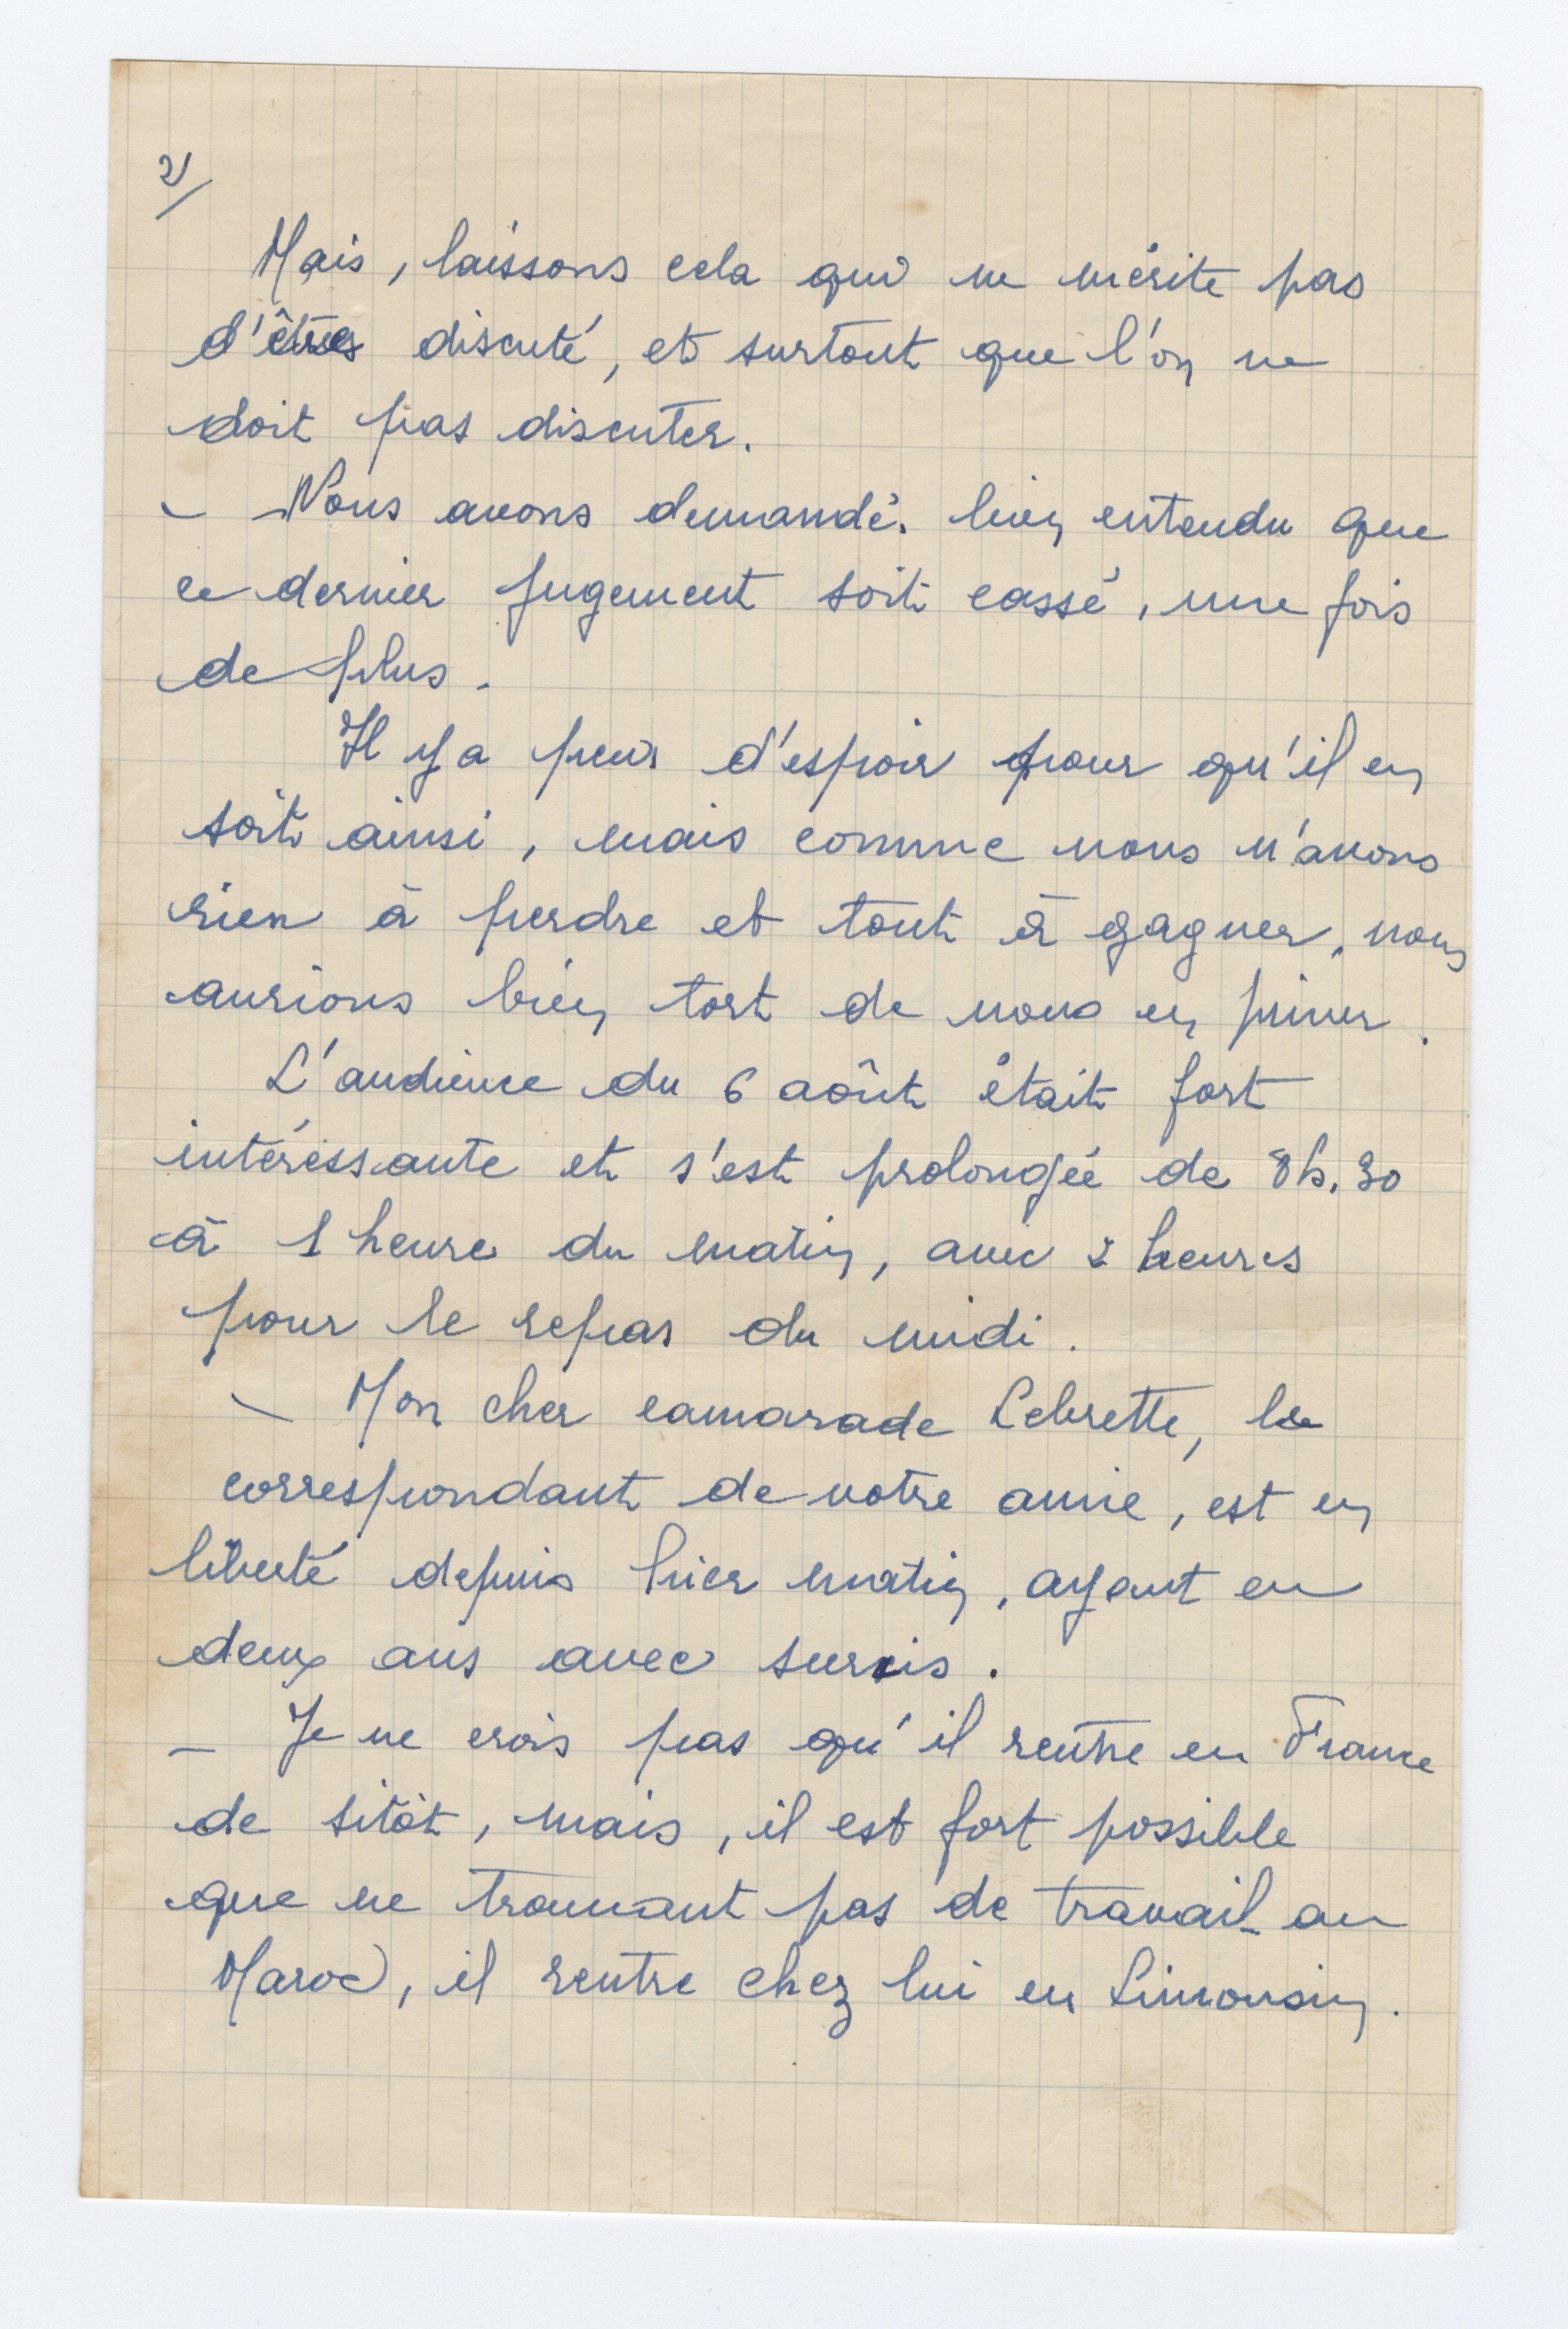 2/
Mais, laissons cela qui ne mérite pas
d'être discuté, et surtout que l'on ne
doit pas discuter.
- Nous avons demandé, bien entendu que
ce dernier jugement soit cassé, une fois
de plus.
Il y a peu d'espoir pour qu'il en
soit ainsi, mais comme nous n'avons
rien à perdre et tout à gagner, nous
aurions bien tort de nous en priver.
L'audience du 6 août était fort
intéressante et s'est prolongée de 8h.30
à 1 heure du matin, avec 2 heures
pour le repas du midi.
- Mon cher camarade Lebrette, le
correspondant de votre amie, est en
liberté depuis hier matin, ayant eu
deux ans avec sursis.
- Je ne crois pas qu'il rentre en France
de sitôt, mais, il est fort possible
que ne trouvant pas de travail au
Maroc, il rentre chez lui en Limousin.